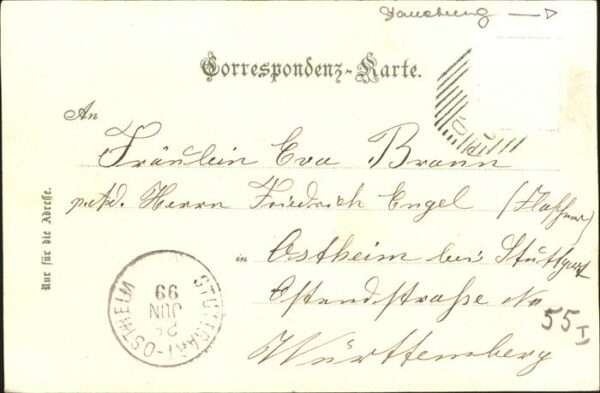 Correspondenz-Karte.
An
Fräulein Eva Braun
p. Adr. Herrn Friedrich Engel
in Ostheim bei Stuttgart
Ostendstraße No
55 I
Württemberg
Nur für die Adresse.
STUTTGART-OSTHEIM
JUN
99